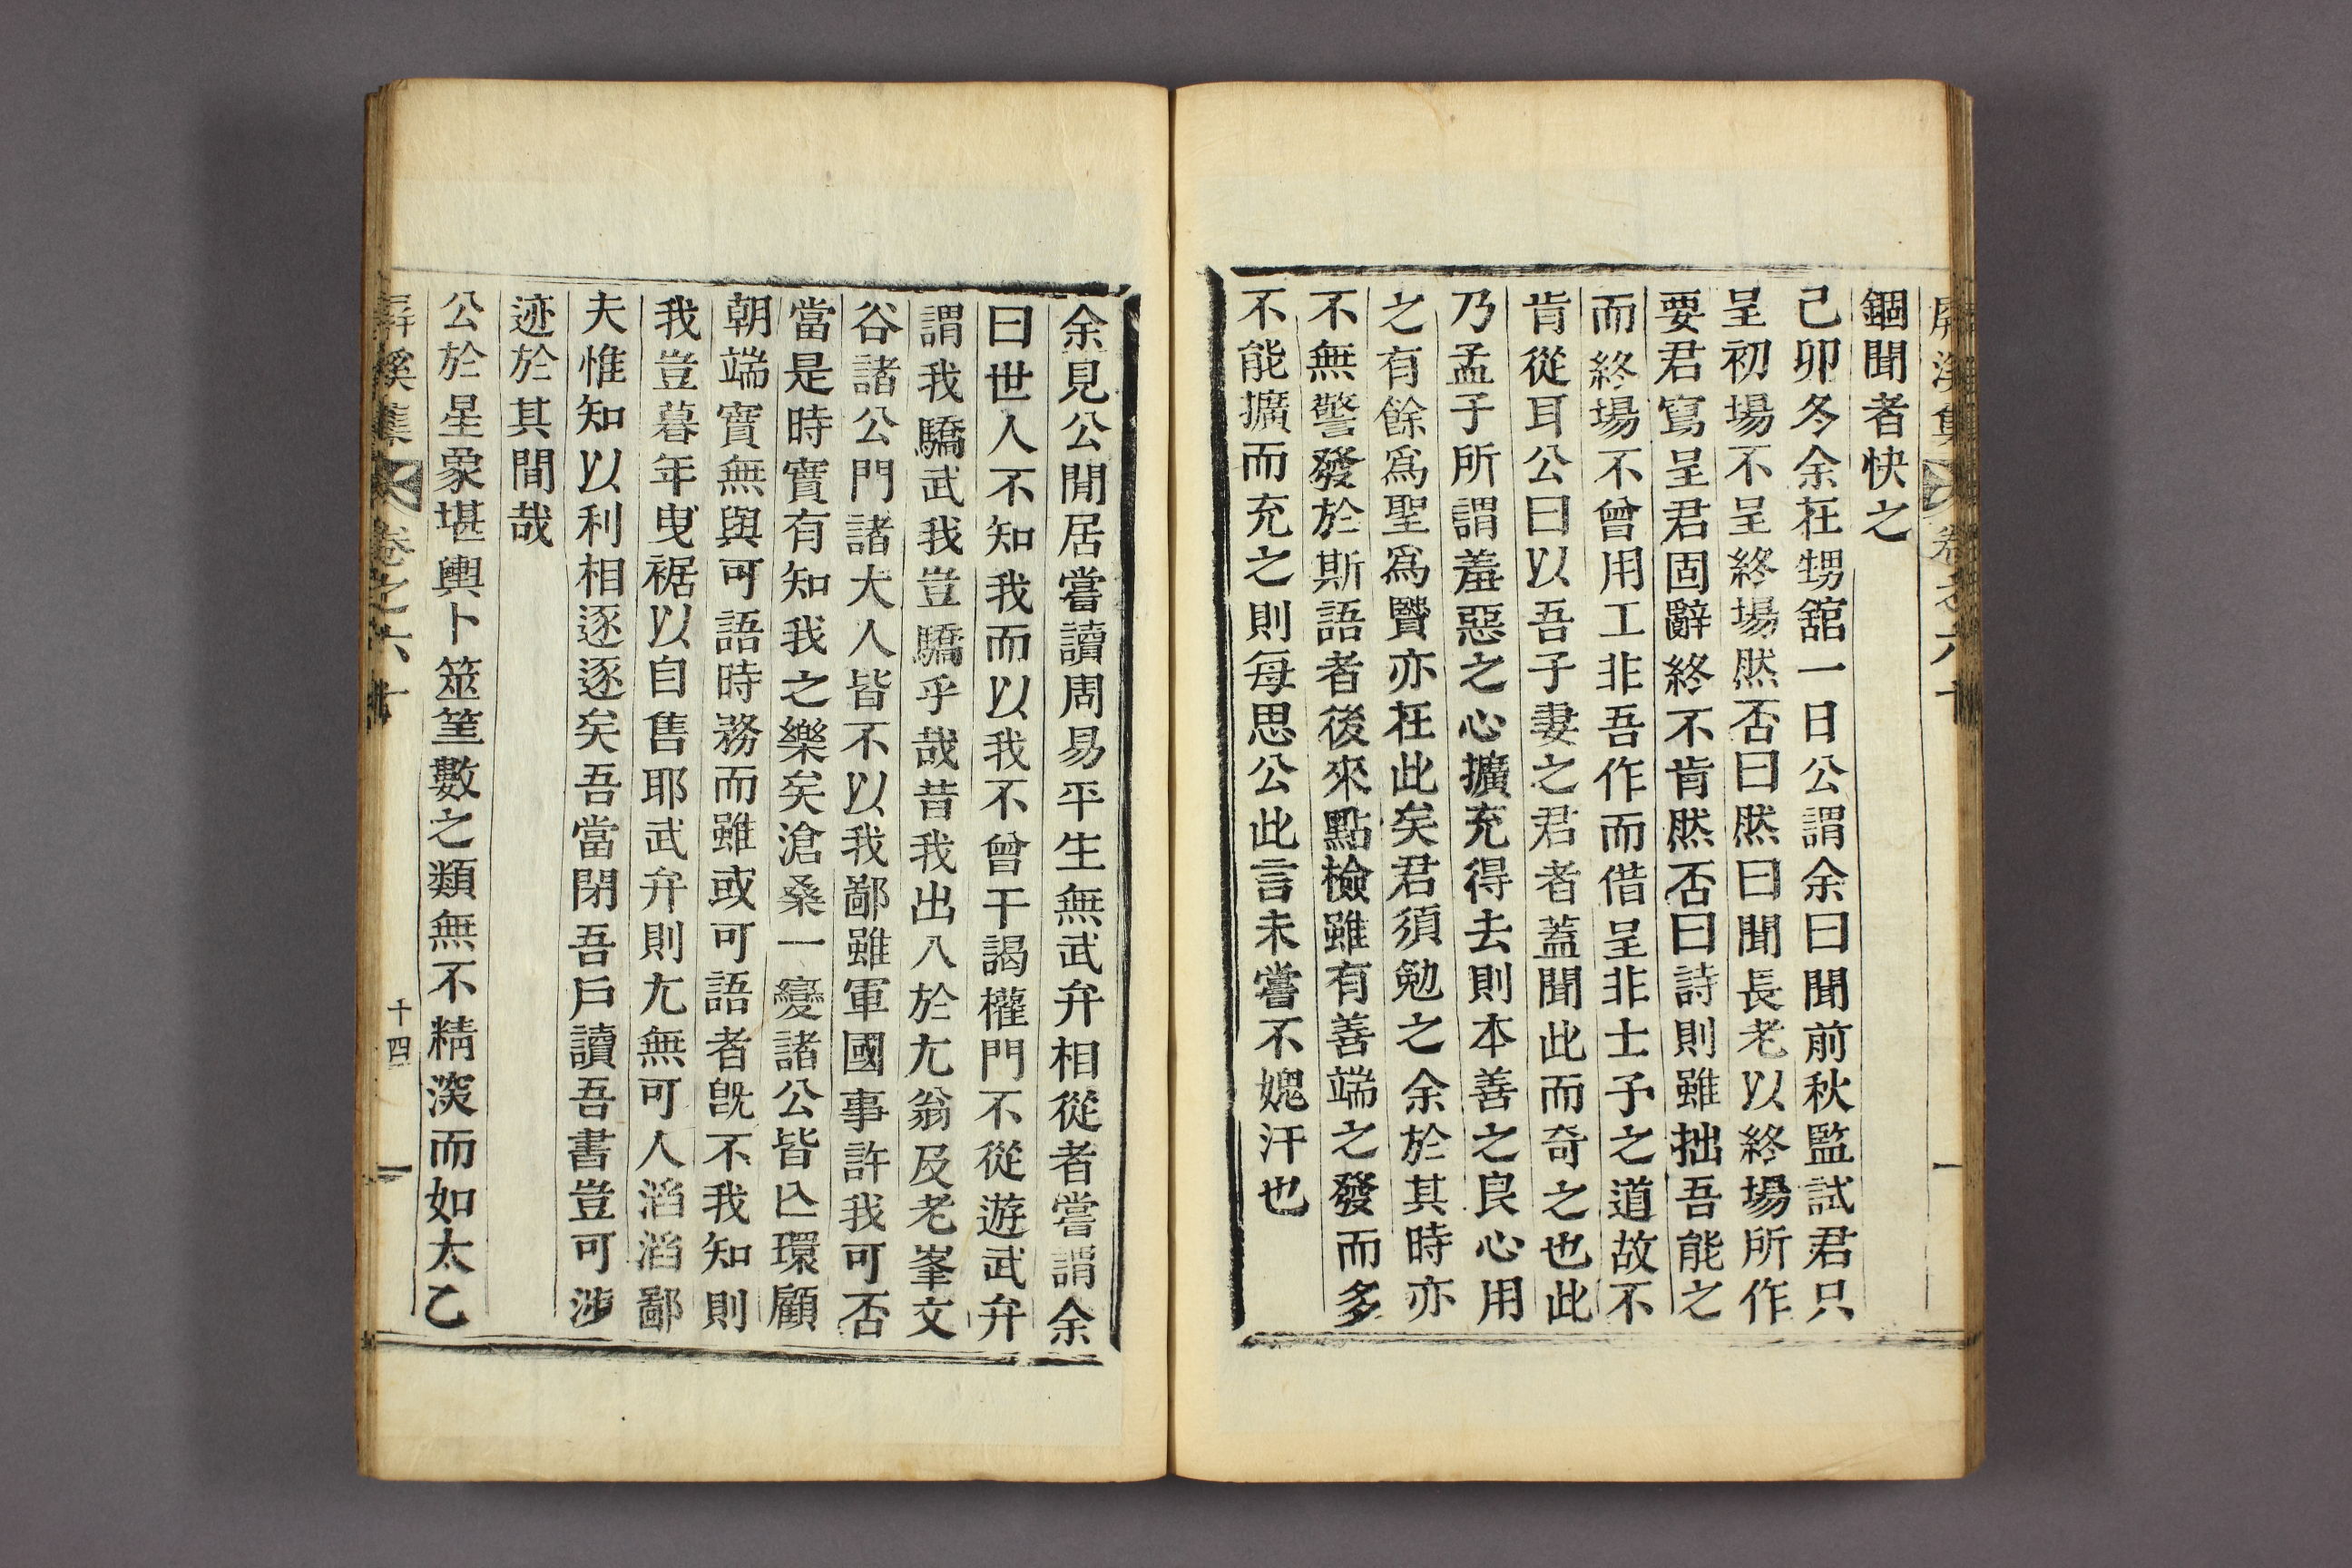 屛溪集 卷之六十
錮聞者快之
己卯冬余在甥舘一日公謂余曰聞前秋監試君只
呈初場不呈終場然否曰然曰聞長老以終場所作
要君寫呈君固辭終不肯然否曰詩則雖拙吾能之
而終場不曾用工非吾作而借呈非士子之道故不
肯從耳公曰以吾子妻之君者蓋聞此而奇之也此
乃孟子所謂羞惡之心擴充得去則本善之良心用
之有餘爲聖爲賢亦在此矣君須勉之余於其時亦
不無警發於斯語者後來點檢雖有善端之發而多
不能擴而充之則每思公此言未嘗不媿汗也
余見公閒居嘗讀周易平生無武弁相從者嘗謂余
曰世人不知我而以我不曾干謁權門不從遊武弁
謂我驕武我豈驕乎哉昔我出入於尤翁及老峯文
谷諸公門諸大人皆不以我鄙雖軍國事許我可否
當是時實有知我之樂矣滄桑一變諸公皆亾環顧
朝端實無與可語時務而雖或可語者旣不我知則
我豈暮年曳裾以自售耶武弁則尤無可人滔滔鄙
夫惟知以利相逐逐矣吾當閉吾戶讀吾書豈可涉
迹於其間哉
公於星象堪輿卜筮筭數之類無不精深而如太乙
屛溪集 卷之六十 十四